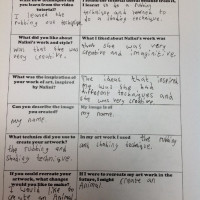 you learn from the video
tutorial?
I learned the
rubbing out technique
I learnt to be a Rubbing
technique and learned to
do a shading technique.
What did you like about
Nallat's work and style?
was that she was
very creative.
What I liked about Nallat's work
think she was very
creative and imaginitive.
What was the inspiration of
your work of art, inspired
by Nallat?
The ideas that inspired
me was she had
different techniques and
she was very creative
Can you describe the image
you created?
my name
my name.
What technics did you use to
create your artwork?
the rubbing and
shading technique.
In my art work I used the rubbing
and shading technique.
If you could recreate your
artwork, what changes
would you like to make?
I would like to
create an Animal
If I were to recreate my art work in the
future, I might create an
Animal.